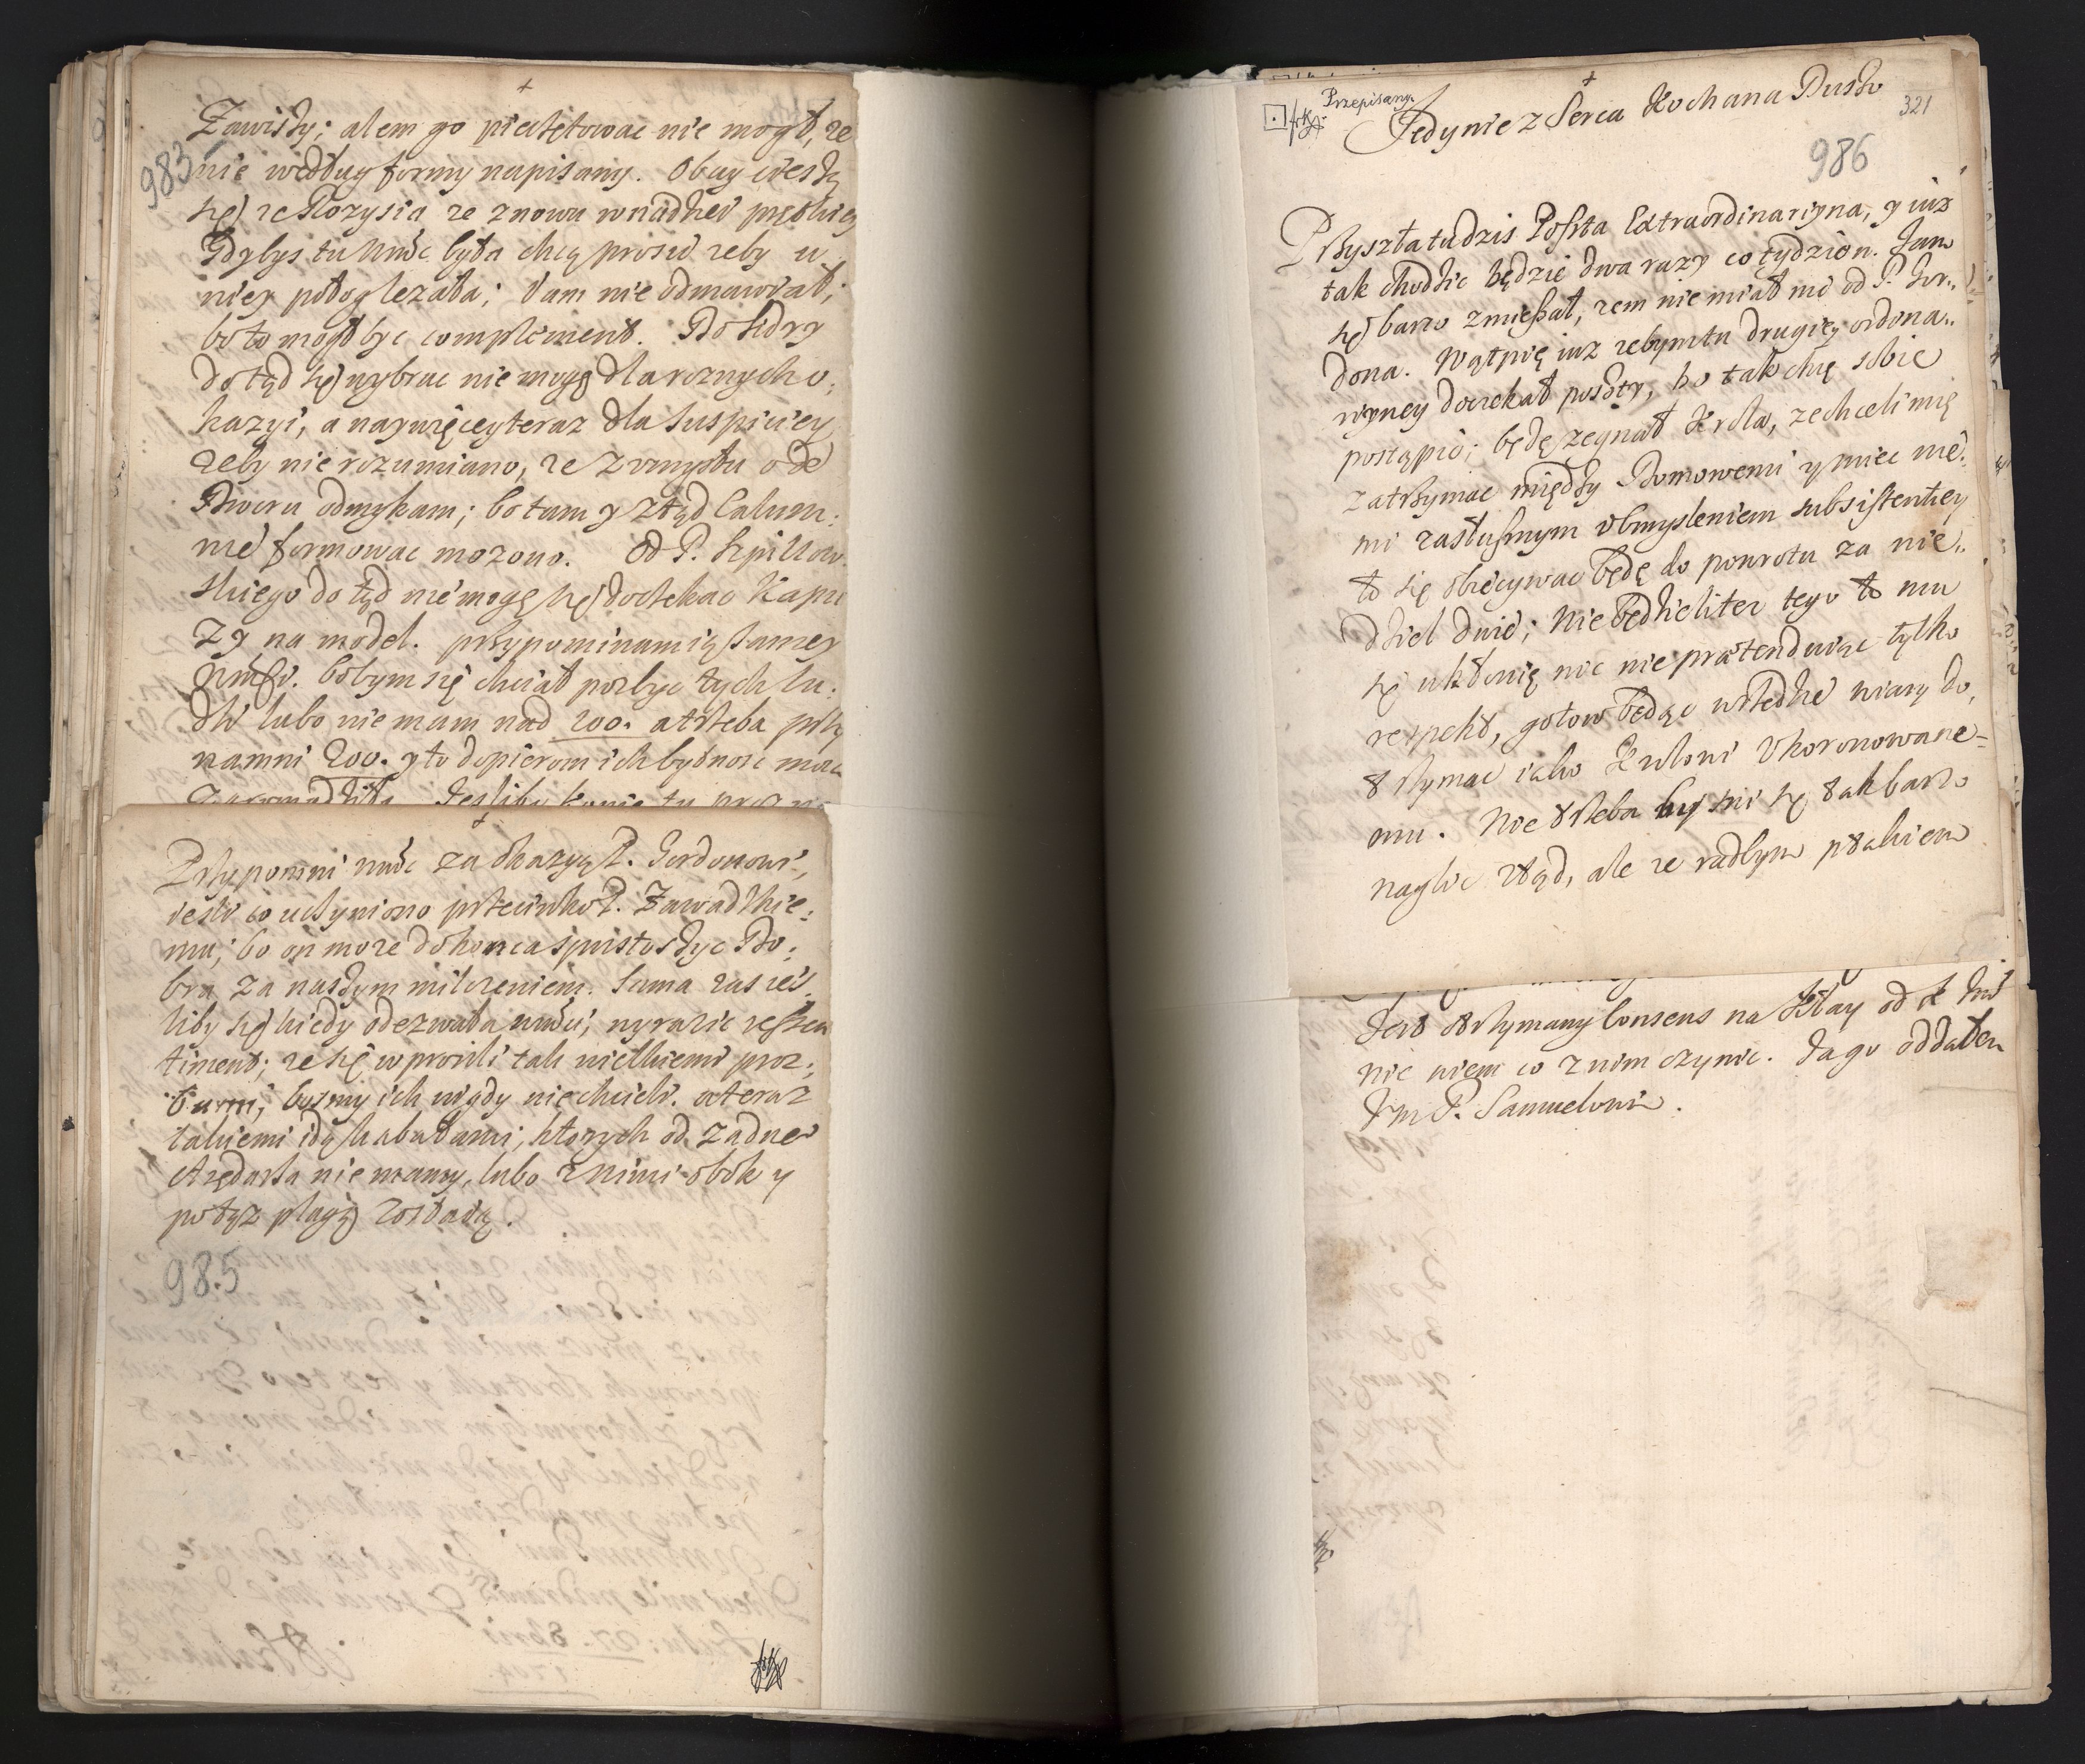 983
Zawiszy; alem go pieczętowac nie mogł, ze
nie według formy napisany. Obay ciesżą
się z Rozysia ze znowu w nadziei prętkiey
Gdybys tu mwc była chcą prosic zeby u
niey połog lezała; Jam nie odmawiał;
bo to mogł byc complement. Do Lidzy
dotąd się wybrac nie mogę dla roznych o:
kazyi, a naywięcey teraz dla suspiciey
zeby nie rozumiano, ze z umysłu ode
Dworu odmykam; bo tam y ztąd Calum:
nie formowac mozono. Od P.
skiego do tąd nie mogę się docżekac Kapu
zy na model. przypominam ią samey
bobym się chciał pozbyc tych lu:
dźi lubo nie mam nad 200. a trżeba przy
namni 200. y to dopierom ich bytnosc
Przypomni mwc za okazyą P. Gordonowi,
iesli co ucżyniono przeciwko P. Zawadzkie:
mu; bo on moze do konca spustosżyc Do:
bra za nasżym milczeniem. Sama zas ieś:
liby się kiedy odezwała mwci, wyrazic ressen
timent; ze się wprosili tak wielkiemi proz:
bami, bosmy ich nigdy nie chcieli. a teraz
takiemi idą skabałami; ktorych od zadne
Arędarża nie mamy, lubo z nimi obok y
potąz plagą zostaią.
98.5
Przepisany.
321
Jedynie z Serca Kochana Dusko
986
Przyszła tu dzis Poszta Extraordinaryna, y iuz
tak chodzic będzie dwa razy co tydzien. Jam
się barzo zmięszał, zem nie miał nic od P. Gor:
dona. Wątpię iuz zebym tu drugiey ordona:
ryney docżekał poszty, bo tak chcę sobie
postąpic; będę zegnał Krola, zechceli mię
zatrżymac między Domowemi y miec nie:
mi zasłusznym obmysleniem subsistentiey
to się obiecywac będę do powrotu za nie:
dziel dwie; Nie będzieli ter tego to mu
się ukłonię nic nie prætenduiąc tylko
respekt, gotow będąc wszędzie wiary do:
trżymac iako Krolowi Ukoronowane-
mu. Nie trżeba by mi się tak barzo
naglic ztąd, ale ze radbym ptakiem
Jest otrżymany Consens na od
nie wiem co z nim czynic. Ja go oddałem
Jm P. Samuelowi.